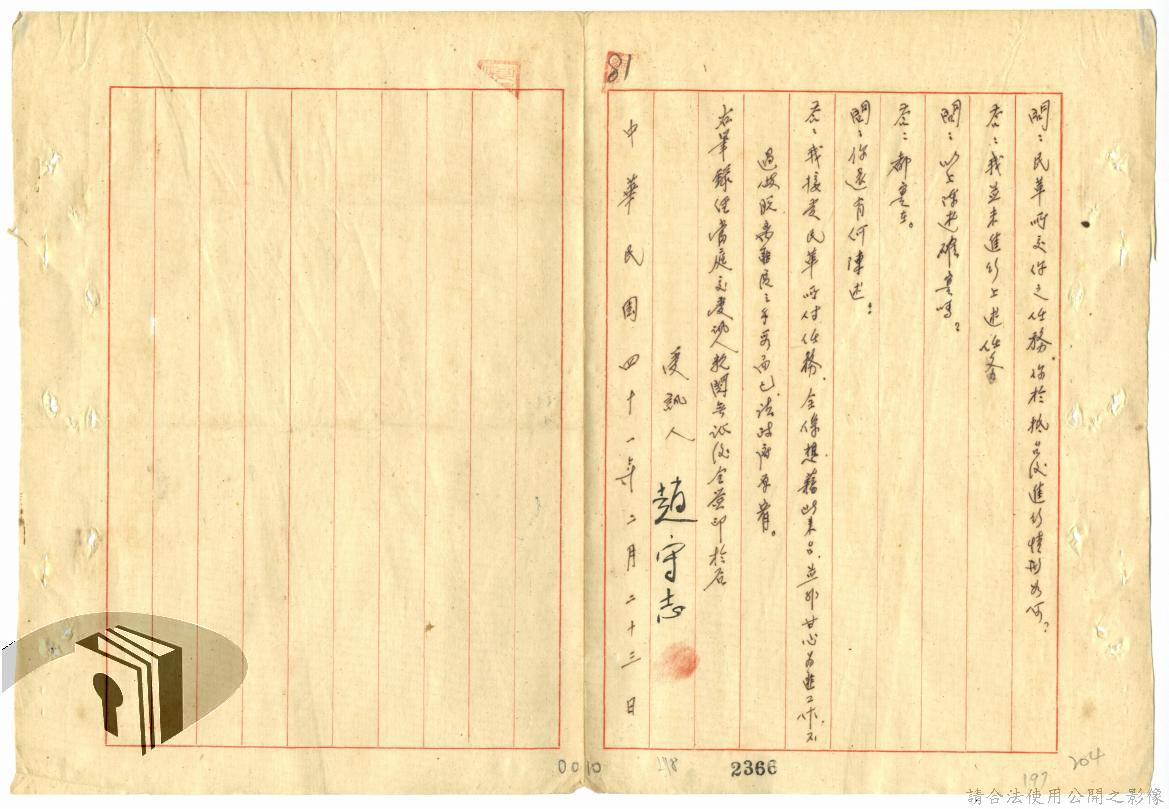 81
問：民革所交你之任務，你於抵台後進行情形為何？
答：我並未進行上述任務
問：以上所述確實嗎？
答：都實在。
問：你還有何陳述：
答：我接受民革所付任務，全係想藉此來台，並非甘心為進工作，不
過做脫離匪區之手段而已，請政府原宥。
右筆錄經當庭交受訊人親閱無訛後令簽印於后
受訊人 趙守志
中華民國四十一年二月二十三日
0010
218
2366
197
204
請合法使用公開之影像